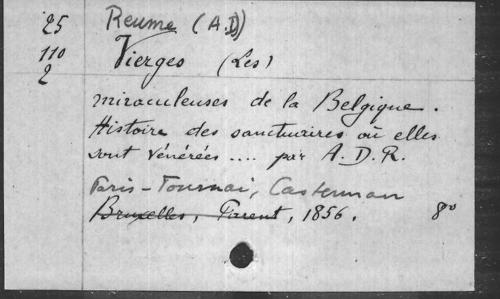 25 Reume (A.D)
110 Vierges (Les)
2
miraculeuses de la Belgique.
Histoire des sanctuaires où elles
sont vénérées .... par A. D. R.
Paris - Tournai, Casterman
Bruxelles, Parent, 1856. 8º